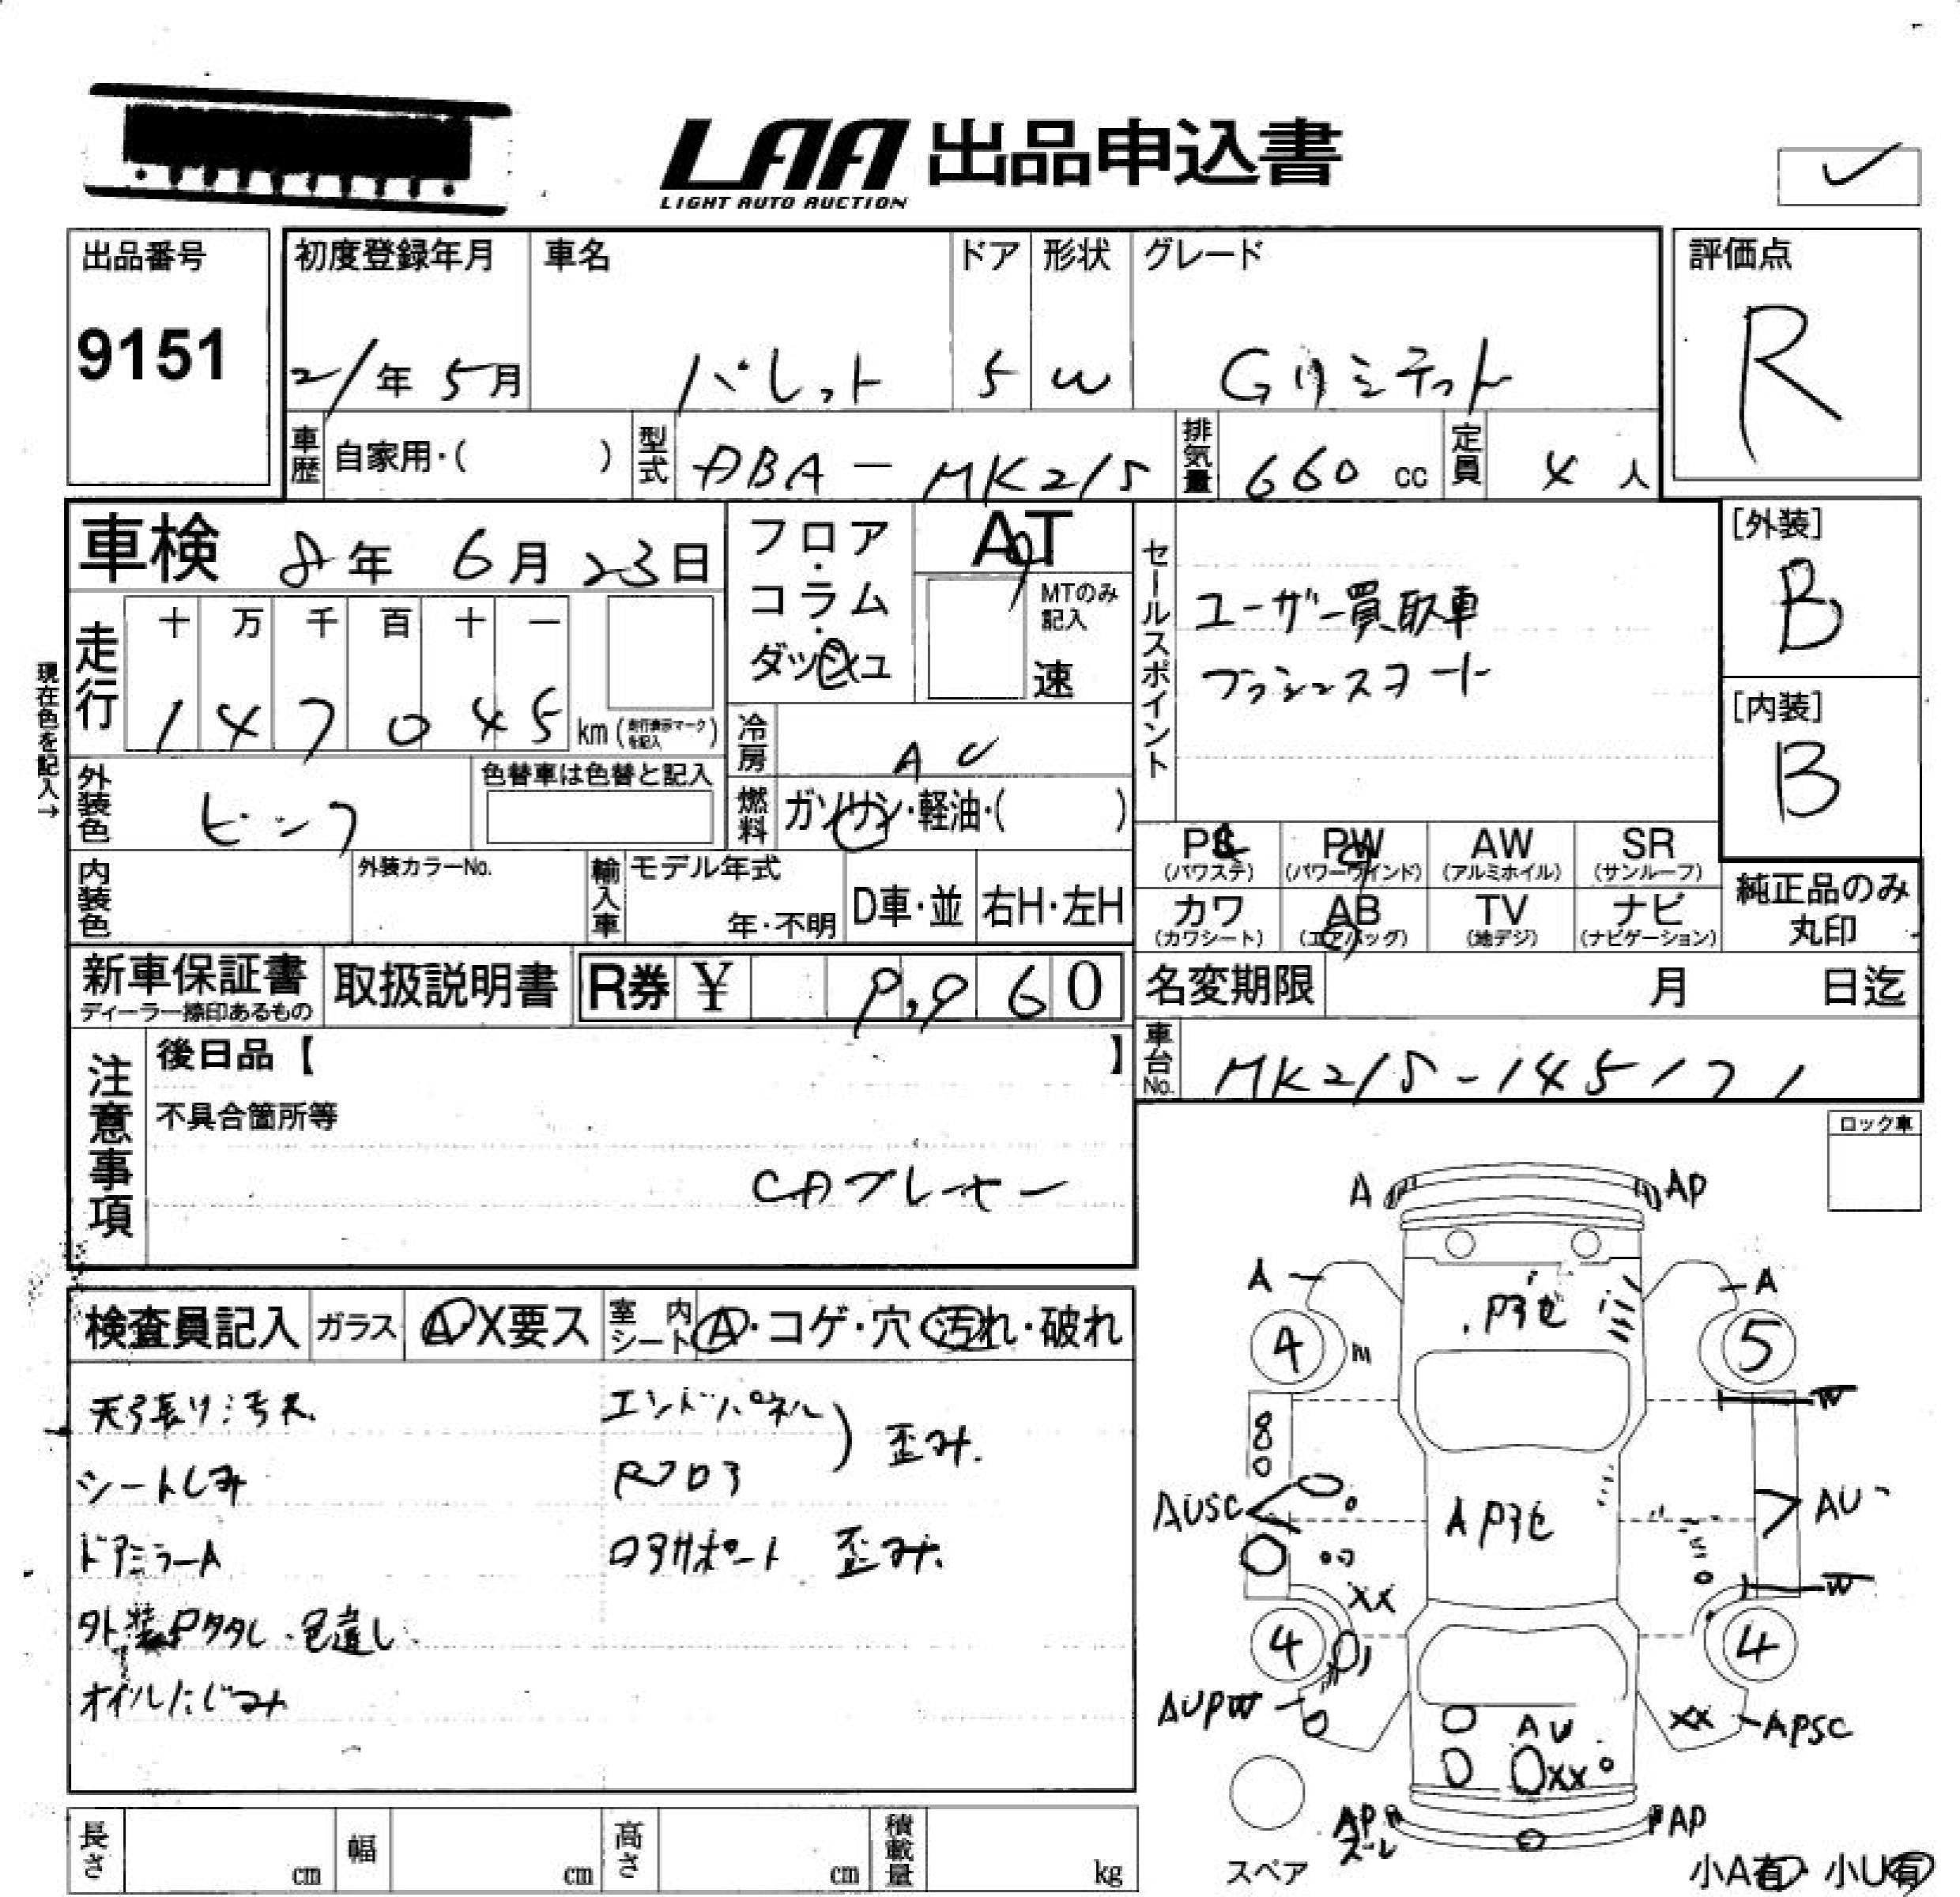 LAA 出品申込書
LIGHT AUTO AUCTION
出品番号
9151
初度登録年月
21年 5月
車名
パレット
ドア
5
形状
W
グレード
Gリミテット
評価点
R
車歴
自家用・( )
型式
DBA-MK21S
排気量
660 cc
定員
4 人
車検
8年 6月 23日
フロア・コラム・ダッシュ
AT
MTのみ記入
速
セールスポイント
ユーザー買取車
プッシュスタート
[外装]
B
[内装]
B
走行
十 万 千 百 十 一
1 4 7 0 4 5 km (走行表示マークを記入)
現在色を記入→
冷房
AC
外装色
ピンク
色替車は色替と記入
燃料
ガソリン・軽油・( )
PS (パワステ)
PW (パワーウインド)
AW (アルミホイル)
SR (サンルーフ)
カワ (カワシート)
AB (エアバッグ)
TV (地デジ)
ナビ (ナビゲーション)
純正品のみ丸印
内装色
外装カラーNo.
輸入車
モデル年式
年・不明
D車・並
右H・左H
新車保証書
ディーラー捺印あるもの
取扱説明書
R券 ¥ 9,960
名変期限 月 日迄
車台No.
MK21S-145171
注意事項
後日品【 】
不具合箇所等
CDプレーヤー
ロック車
検査員記入
ガラス
A・X要ス
室内シート
A・コゲ・穴・汚れ・破れ
天張り汚れ
シートしみ
ドアミラーA
外装Pタタレ・色違し
オイルにじみ
エンドパネル
Rフロア
) 歪み
ロアサポート 歪み
A
AP
A
A
4
m
5
W
AUSC
AU
W
XX
4
4
AUPW
AU
XX
XX
APSC
AP
ズレ
AP
スペア
小A有・小U有
長さ cm
幅 cm
高さ cm
積載量 kg